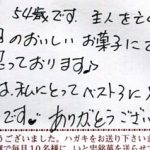 54歳です. 主人を亡く
のおいしい お菓子にて
っております♪
は、私にとってベスト3に
です♡ ありがとうござい
うございました。ハガキをお送り下さいま
で毎月10名様に、いと忠銘菓を送らせて